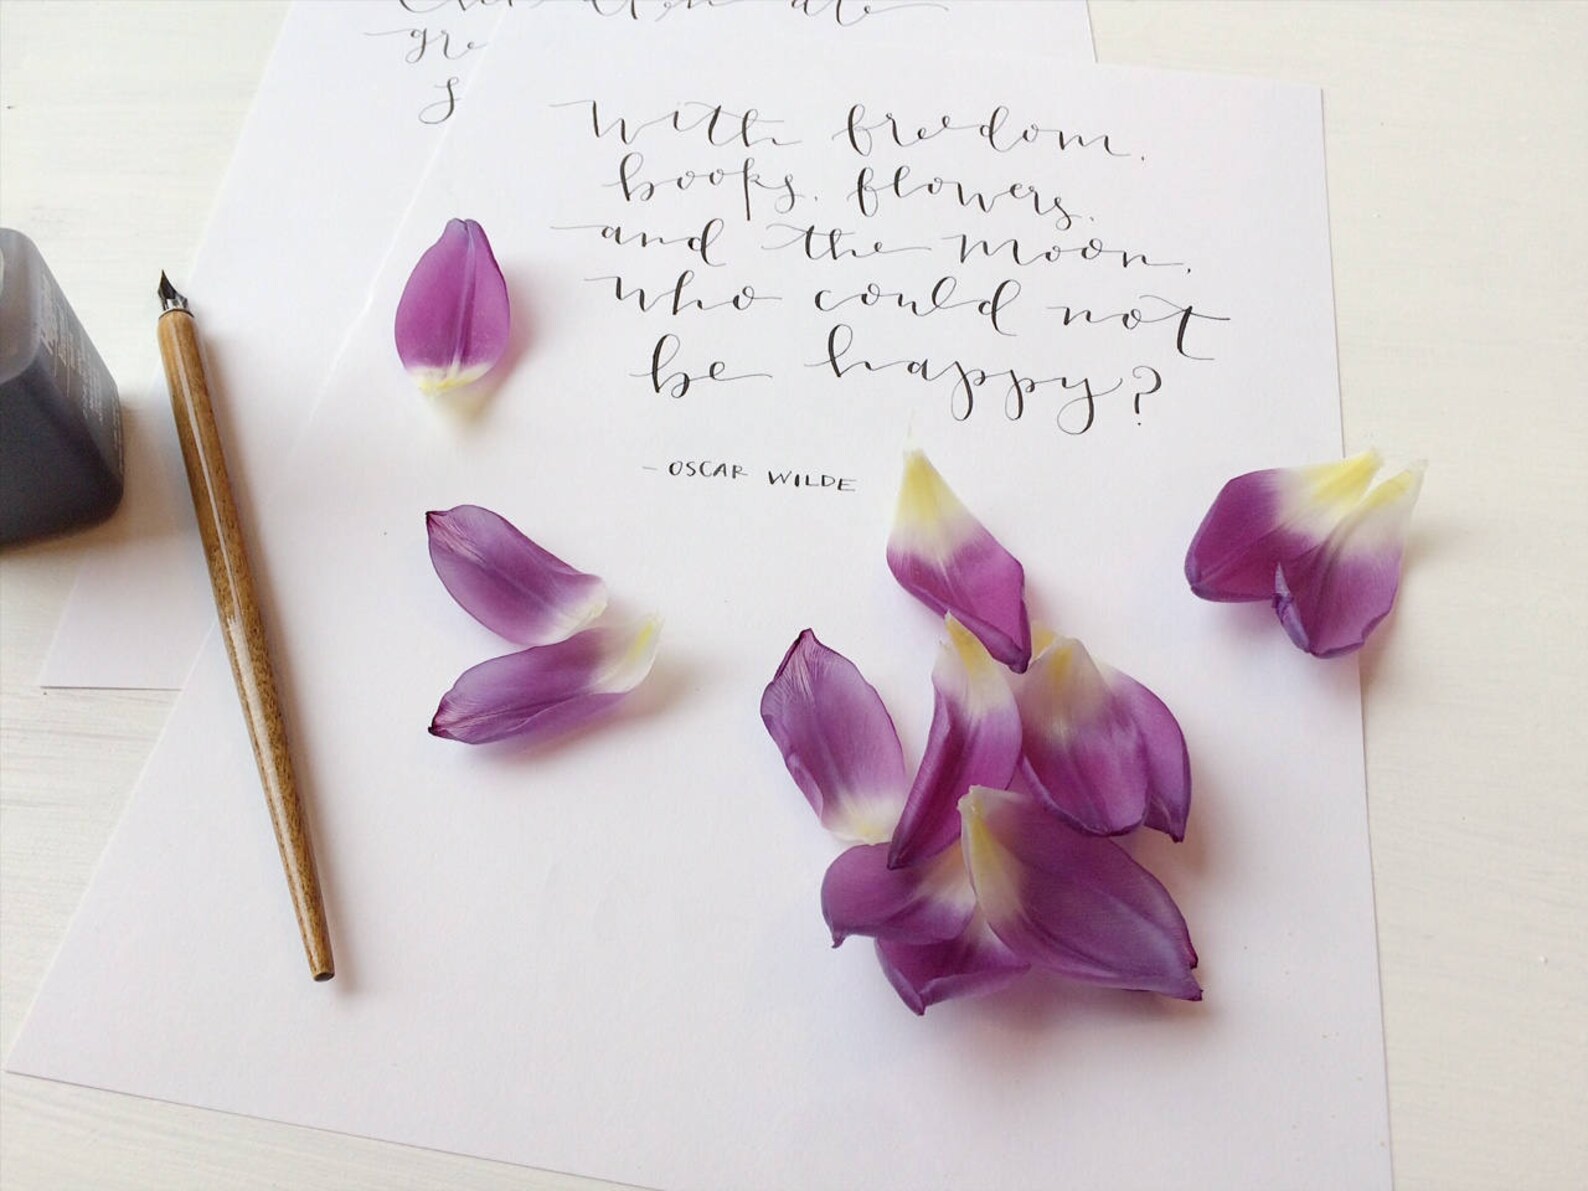 With freedom,
books, flowers,
and the moon,
who could not
be happy?
- OSCAR WILDE